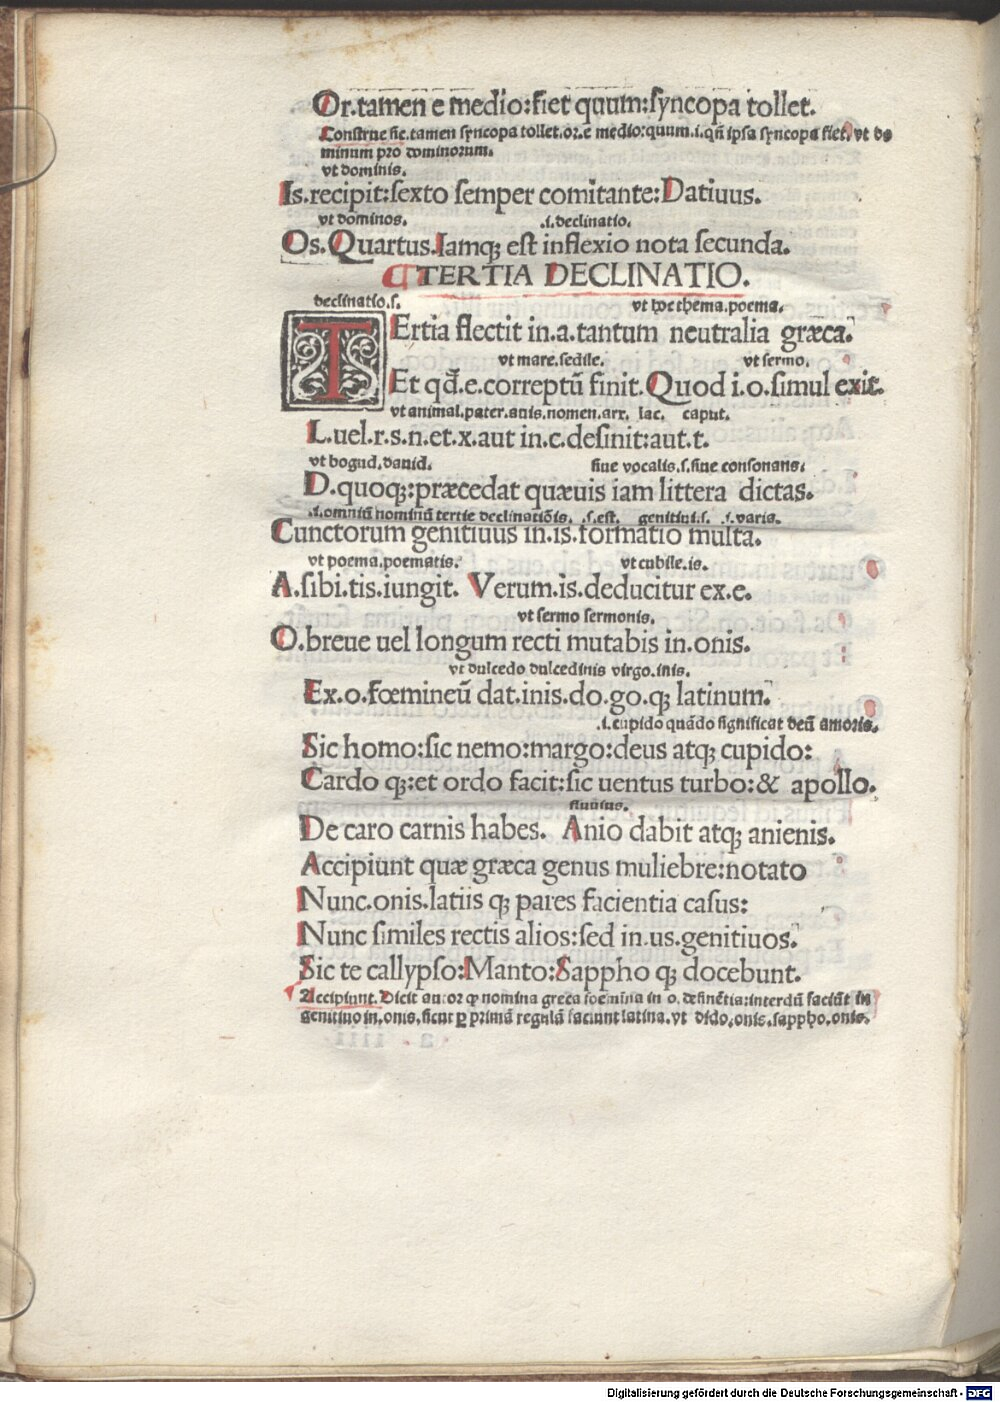 Or.tamen e medio:fiet quum:ſyncopa tollet.
Conſtrue ſic.tamen ſyncopa tollet.or.e medio:quum.i.qn̄ ipſa ſyncopa fiet.vt do
minum pro dominorum.
vt dominis.
Is.recipit:ſexto ſemper comitante:Datiuus.
vt dominos. .i.declinatio.
Os.Quartus.Iamqꝫ eſt inflexio nota ſecunda.
¶TERTIA DECLINATIO.
declinatio.ſ. vt hoc thema.poema.
TErtia flectit in.a.tantum neutralia græca.
vt mare.ſedile. vt ſermo.
Et qđ.e.correptū finit.Quod i.o.ſimul exit.
vt animal.pater.anis.nomen.arx. lac. caput.
L.uel.r.s.n.et.x.aut in.c.deſinit:aut.t.
vt bogud.dauid. ſiue vocalis.ſ.ſiue conſonans.
D.quoqꝫ:præcedat quæuis iam littera dictas.
.i.omniū nominū tertie declinatiōis. .ſ.eſt. genitiui.ſ. .ſ.varia.
Cunctorum genitiuus in.is.formatio multa.
vt poema.poematis. vt cubile.is.
A.ſibi.tis.iungit. Verum.is.deducitur ex.e.
vt ſermo ſermonis.
O.breue uel longum recti mutabis in.onis.
vt dulcedo dulcedinis virgo.inis.
Ex.o.fœmineū dat.inis.do.go.qꝫ latinum.
.i.cupido quādo ſignificat deū amoris.
Sic homo:ſic nemo:margo:deus atqꝫ cupido:
Cardo qꝫ:et ordo facit:ſic uentus turbo:& apollo.
fluuius.
De caro carnis habes. Anio dabit atqꝫ anienis.
Accipiunt quæ græca genus muliebre:notato
Nunc.onis.latiis qꝫ pares facientia caſus:
Nunc ſimiles rectis alios:ſed in.us.genitiuos.
Sic te callypſo:Manto:Sappho qꝫ docebunt.
Accipiunt.Dicit autor ꝙ nomina greca foemina in o.deſinētia:interdū faciūt in
genitiuo in.onis.ſicut ꝑ primā regulā faciunt latina.vt dido.onis.ſappho.onis.
Digitalisierung gefördert durch die Deutsche Forschungsgemeinschaft - DFG